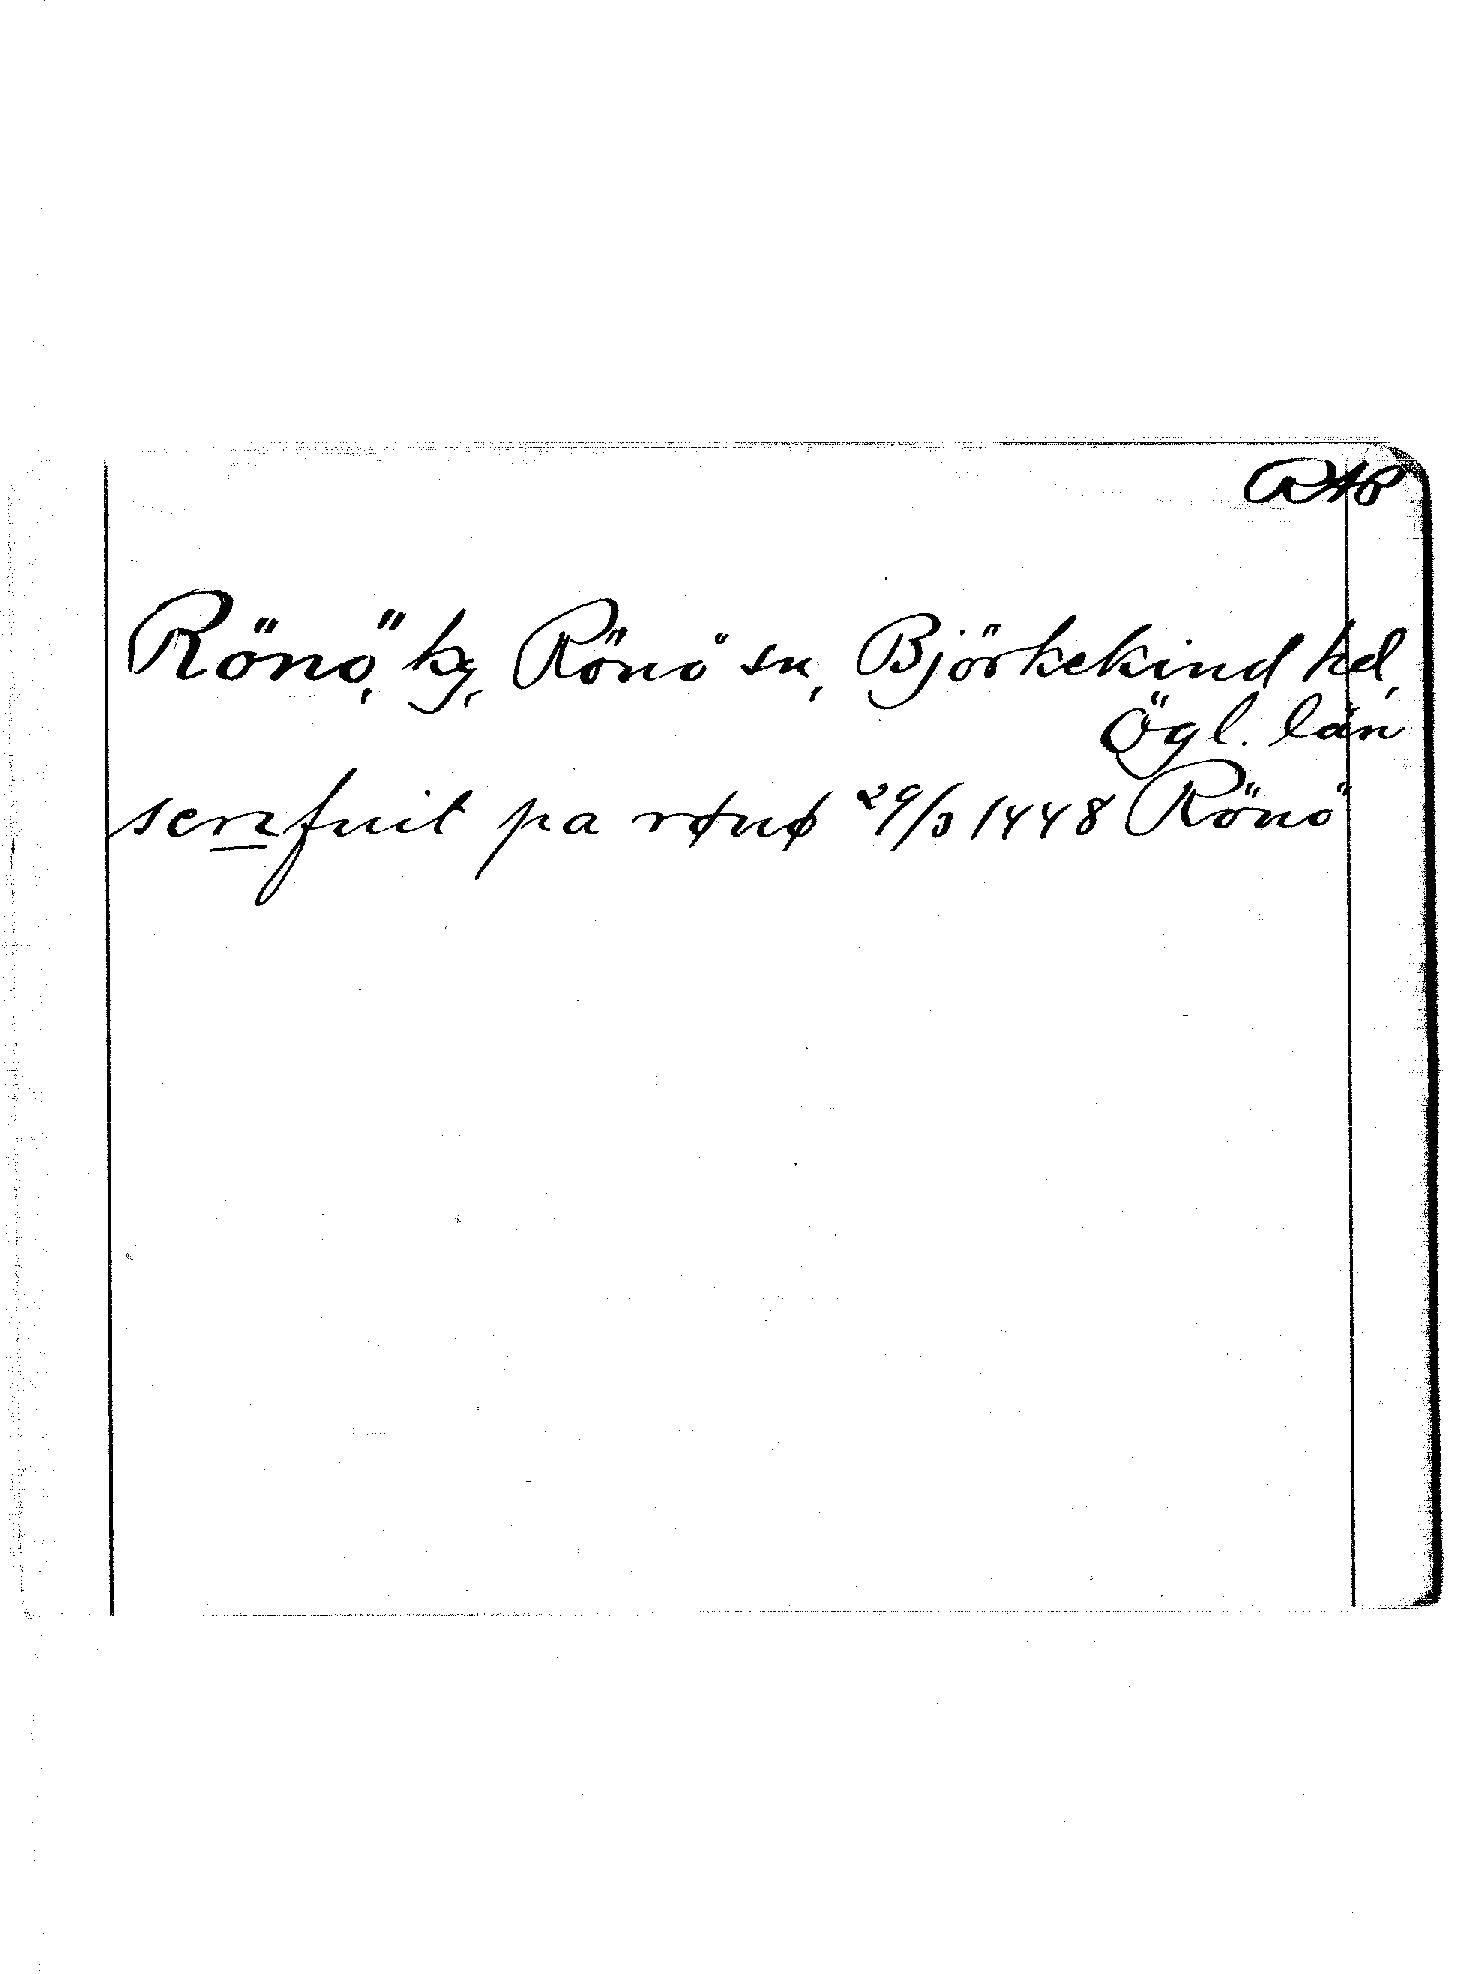 RAP
Rönö, kg, Rönö sn, Björkekind hd,
Ögl. län
scrzfuit pa rønø 29/3 1448 Rönö